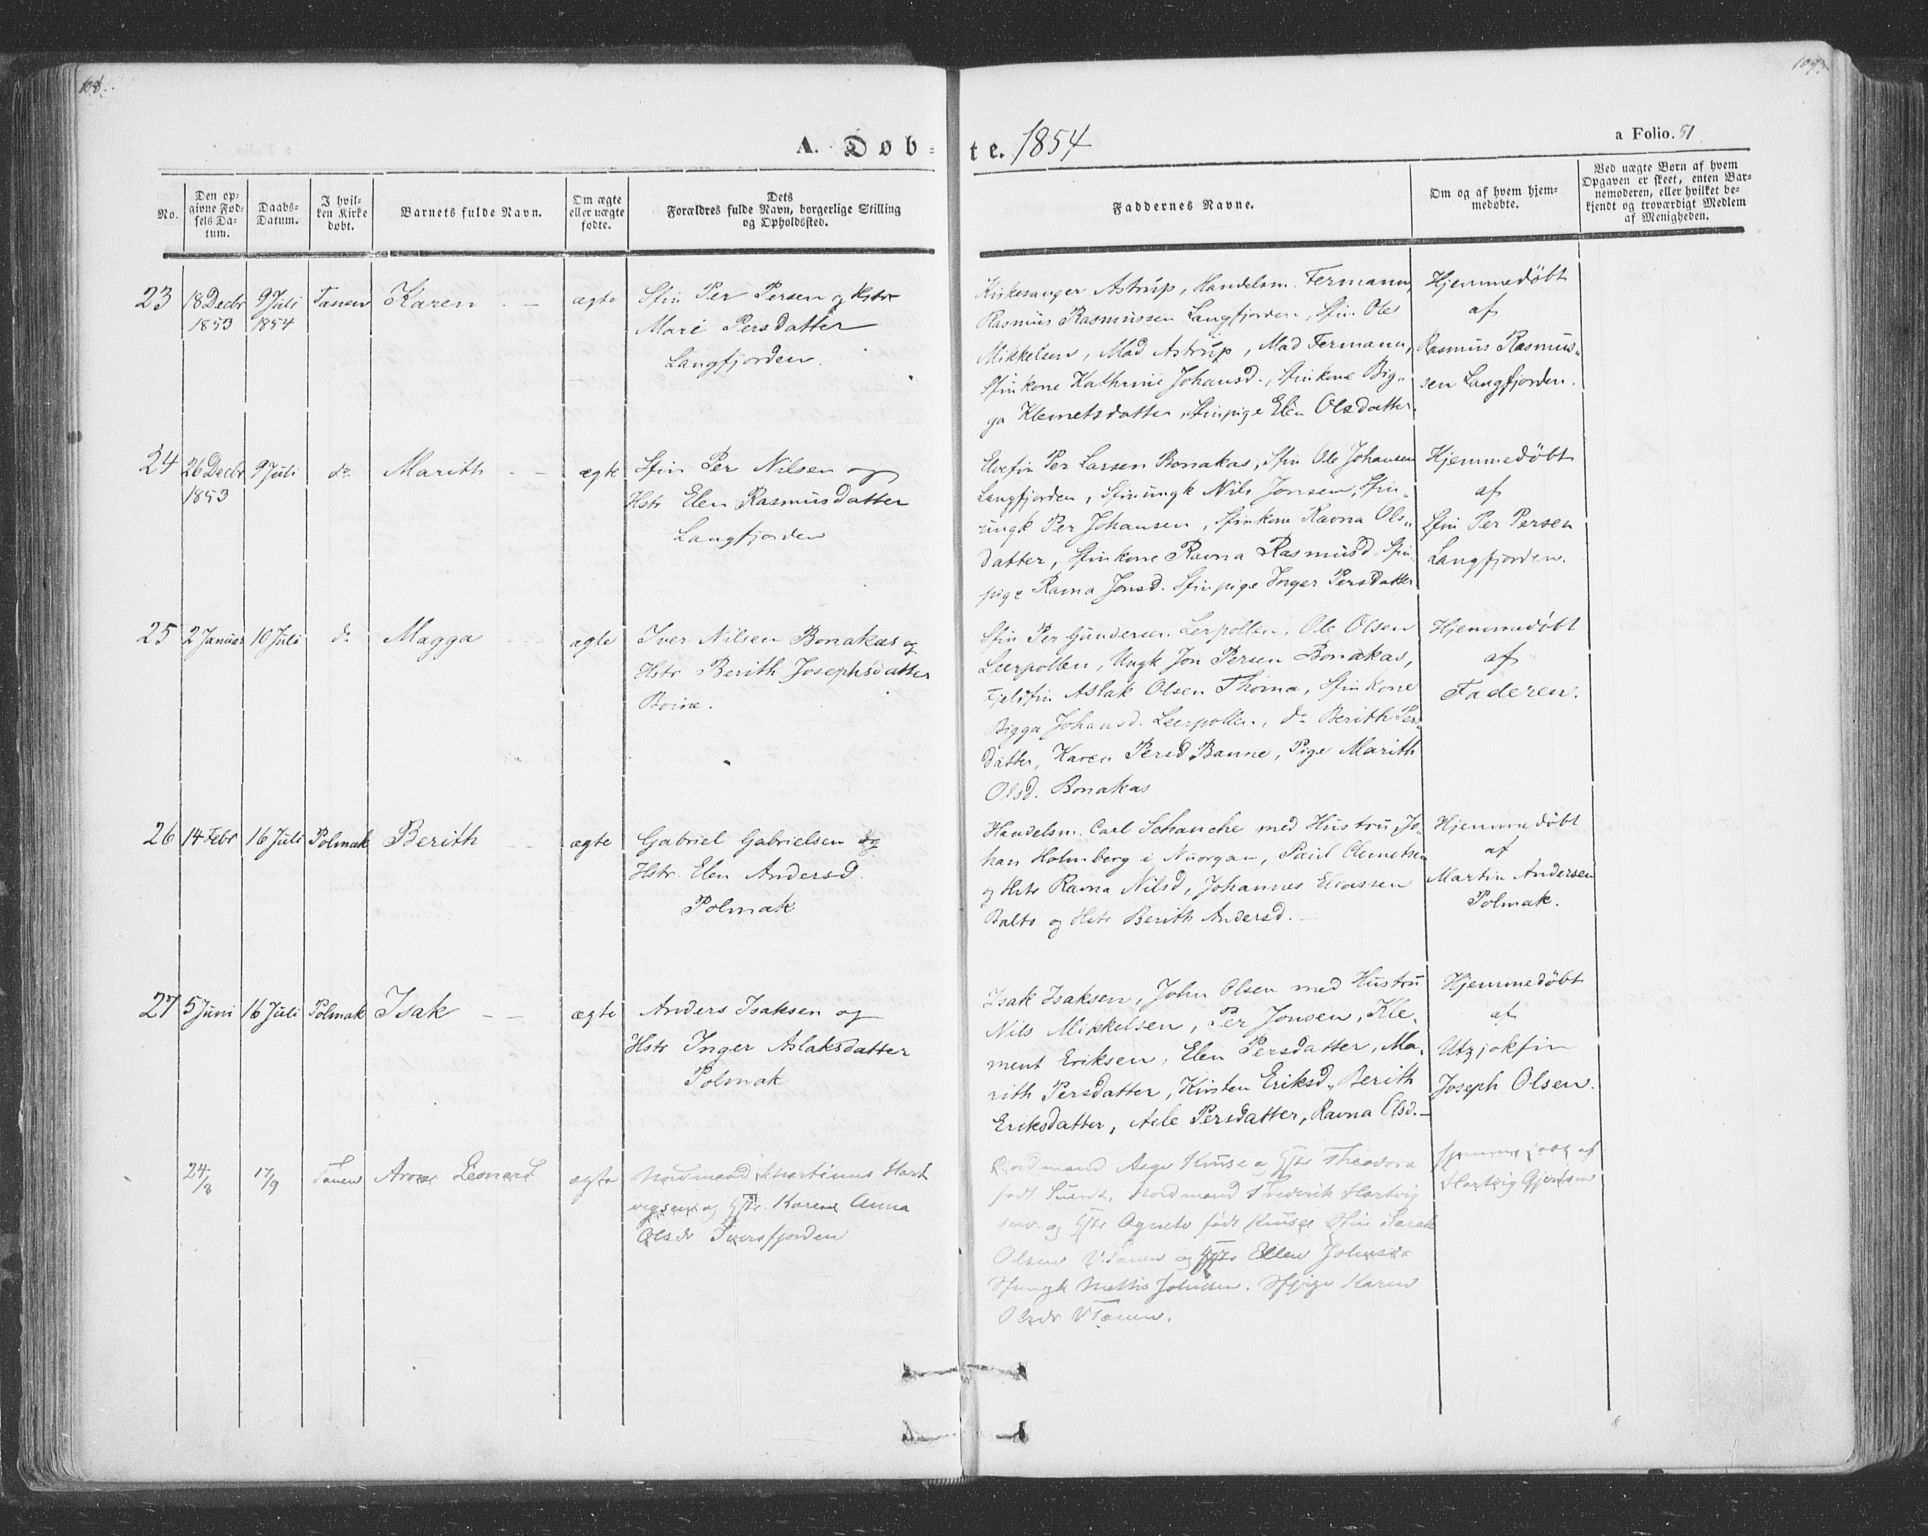 108.
109.
A. Døb-
te. 1854
a Folio. 51
No.
Den op-
givne Fød-
sels Da-
tum.
Daabs-
Datum.
I hvil-
ken Kirke
døbt.
Barnets fulde Navn.
Om ægte
eller uægte
fødte.
Dets
Forældres fulde Navn, borgerlige Stilling
og Opholdssted.
Faddernes Navne.
Om og af hvem hjem-
medøbte.
Ved uægte Børn af hvem
Opgaven er skeet, enten Bar-
nemoderen, eller hvilket be-
kjendt og troværdigt Medlem
af Menigheden.
23
18 Decbr
1853
9 Juli
1854
Tanen
Karen
ægte
Sfin Per Persen og Hstr
Mari Persdatter
Langfjorden.
Kirkesanger Astrup, Handelsm. Fermann,
Rasmus Rasmussen Langfjorden, Sfin Ole
Mikkelsen, Mad Astrup, Mad Fermann,
Sfinkone Kathrine Johansd., Sfinkone Big-
ga Klemetsdatter, Sfinpige Elen Olsdatter.
Hjemmedøbt
af
Rasmus Rasmus-
sen Langfjorden.
24
26 Decbr
1853
9 Juli
do
Marith
ægte
Sfin Per Nilsen og
Hstr Elen Rasmusdatter
Langfjorden
Elvefin Per Larsen Bonakas, Sfin Ole Johansen
Langfjorden, Sfinungk Nils Jonsen, Sfin-
ungk Per Johansen, Sfinkone Ravna Ols-
datter, Sfinkone Ravna Rasmusd, Sfin-
pige Ravna Jonsd. Sfinpige Inger Persdatter
Hjemmedøbt
af
Sfin Per Persen
Langfjorden.
25
2 Januar
10 Juli
do
Magga
ægte
Iver Nilsen Bonakas og
Hstr Berith Josephsdatter
Boine.
Sfin Per Gundersen Lerpollen, Ole Olsen
Leerpollen, Ungk Jon Persen Bonakas,
Fjeldfin Aslak Olsen Thoma, Sfinkone
Bigga Johansd. Leerpollen, do Berith Per-
datter, Karen Persd Banne, Pige Marith
Olsd. Bonakas
Hjemmedøbt
af
Faderen.
26
14 Febr
16 Juli
Polmak
Berith
ægte
Gabriel Gabrielsen og
Hstr. Elen Andersd.
Polmak
Handelsm. Carl Schanche med Hustru, Jo-
han Holmberg i Nuorgan, Paul Clemetsen
og Hstr Ravna Nilsd, Johannes Eliassen
Balto og Hstr Berith Andersd.
Hjemmedøbt
af
Martin Andersen
Polmak.
27
5 Juni
16 Juli
Polmak
Isak
ægte
Anders Isaksen og
Hstr Inger Aslaksdatter
Polmak
Isak Isaksen, John Olsen med Hustru
Nils Mikkelsen, Per Jonsen, Kle-
ment Eriksen, Elen Persdatter, Ma-
rith Persdatter, Kirsten Eriksd, Berith
Eriksdatter, Aile Persdatter, Ravna Olsd.
Hjemmedøbt
af
Utzjokfin
Joseph Olsen.
24/8
17/9
Tanen
Leonard
ægte
Nordmand Martinus Hart
vigsen og Hstr. Karen Anna
Olsdr
Nordmand Aage Kruse og Hstr Theodora
født Nordmand Frederik Hartvig
sen og Hstr Agneta født Kruse Sfin Sarak
Olsen V. Tanen og Hstr Ellen
Sfungk Mathis Johnsen. Sfpige Karen
Olsdr V Tanen.
af
Hartvig Gjertsen